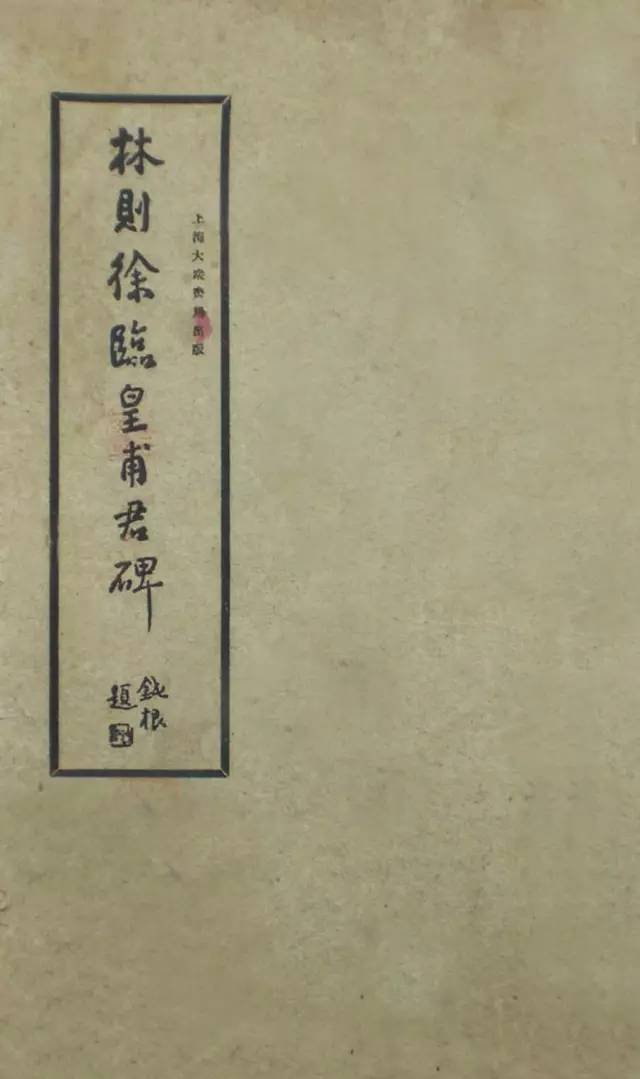 上海大衆書局出版
林則徐臨皇甫君碑
鈍根
題